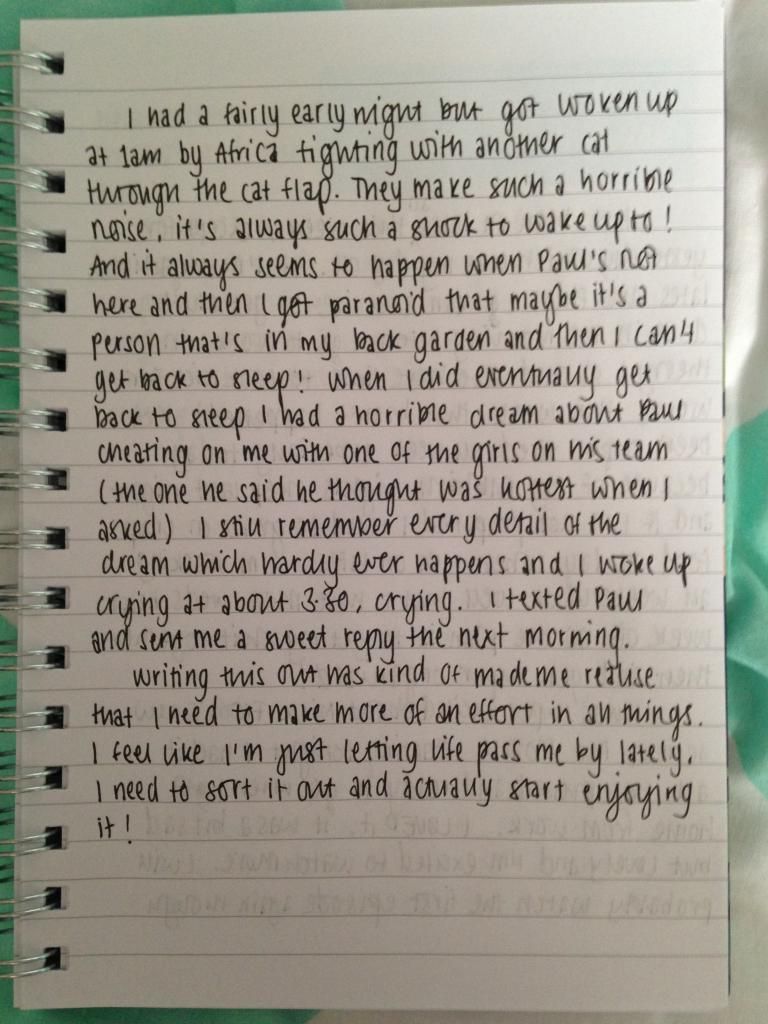 I had a fairly early night but got woken up
at 1am by Africa fighting with another cat
through the cat flap. They make such a horrible
noise, it's always such a shock to wake up to!
And it always seems to happen when Paul's not
here and then I got paranoid that maybe it's a
person that's in my back garden and then I can't
get back to sleep! When I did eventually get
back to sleep I had a horrible dream about Paul
cheating on me with one of the girls on his team
(the one he said he thought was hottest when I
asked) I still remember every detail of the
dream which hardly ever happens and I woke up
crying at about 3.30, crying. I texted Paul
and sent me a sweet reply the next morning.
Writing this out has kind of made me realise
that I need to make more of an effort in all things.
I feel like I'm just letting life pass me by lately,
I need to sort it out and actually start enjoying
it!